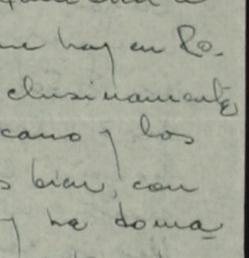 ue hay en Ro-
clusivamente
cano y los
s bien, con
y ha toma-